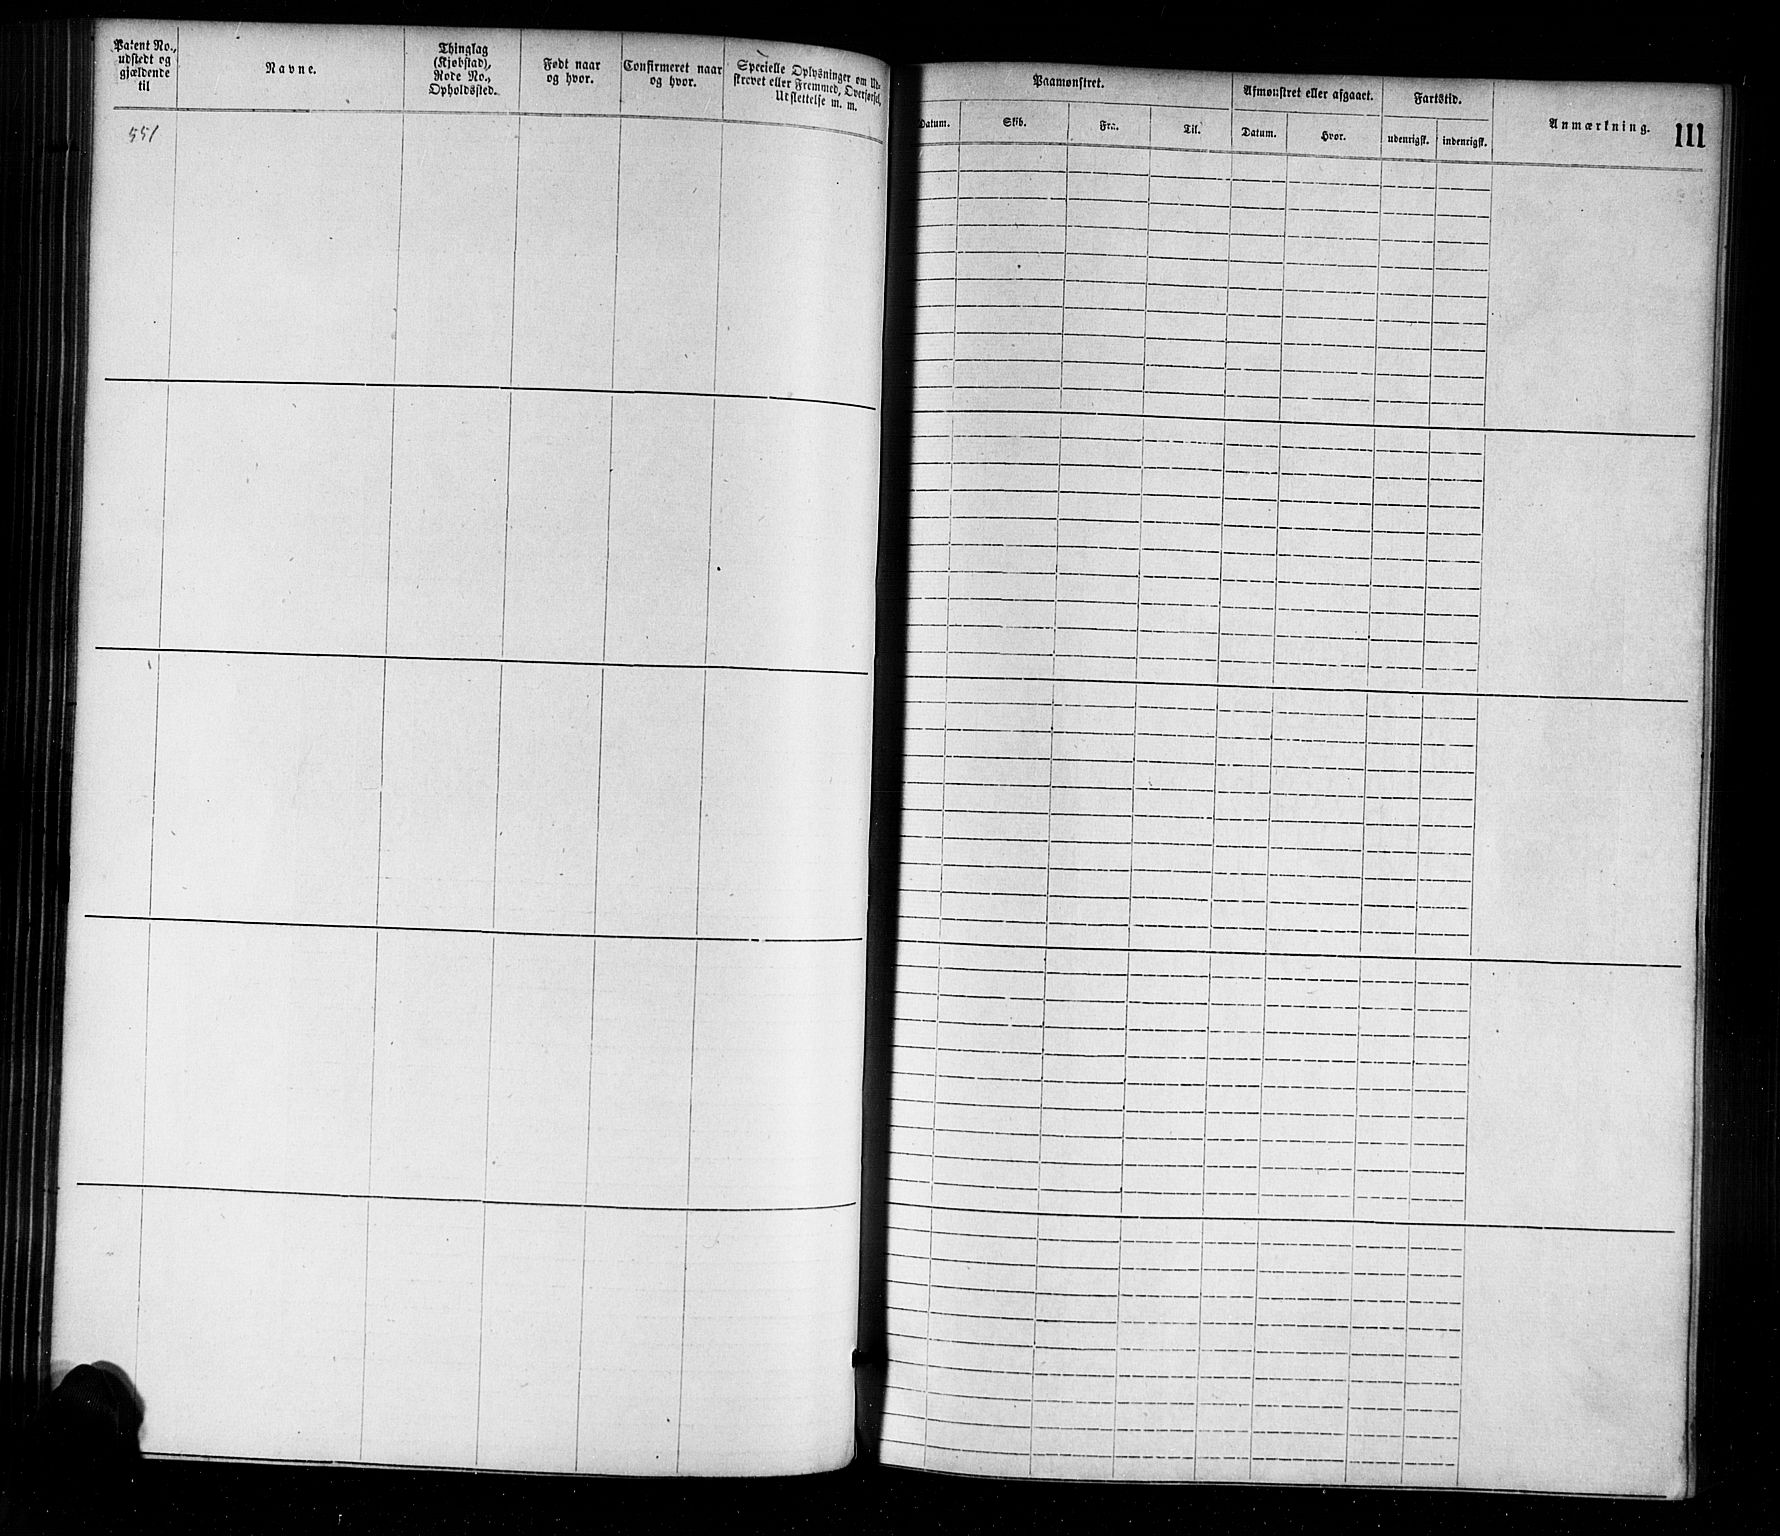 Patent No.,
udstedt og
gjældende
til
Navne.
Thinglag
(Kjøbstad),
Rode No.,
Opholdssted.
Født naar
og hvor.
Confirmeret naar
og hvor.
Specielle Oplysninger om Ud-
skrevet eller Fremmed, Overførsel,
Udslettelse m. m.
551
Paamønstret.
Afmønstret eller afgaaet.
Fartstid.
Anmærkning.
111
Datum.
Skib.
Fra.
Til.
Datum.
Hvor.
udenrigsk.
indenrigsk.